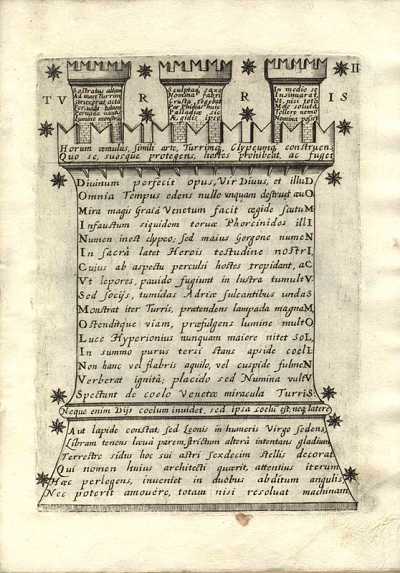 II
TVRRIS
Horum æmulus, simili arte, Turrimq, Clypeumq construens
Quo se, suosque protegens, hostes prohibet, ac fuget
Diuinum perfecit opus, Vir Diuus, et illuD
Omnia Tempus edens nullo unquam destruet æuO
Mira magis Graiâ Venetum facit ægide scutuM
Infaustum siquidem toruæ Phorcinidos illI
Numen inest clypeo; sed maius Gorgone numeN
In sacrâ latet Herois testudine nostrI
Cuius ab aspectu perculsi hostes trepidant, aC
Vt lepores, pauido fugiunt in lustra tumultV
Sed socijs, tumidas Adriæ sulcantibus undaS
Monstrat iter Turris, prætendens lampada magnaM
Ostenditque viam, præfulgens lumine multO
Luce Hyperionius nunquam maiore nitet soL
In summo purus tersi stans apside coelI
Non hanc vel flabris aquilo, vel cuspide fulmeN
Verberat ignitâ; placido sed Numina vultV
Spectant de coelo Venetæ miracula TurriS
Neque enim Dijs coelum inuidet, sed ipsa coelu est, neq latere
Aut lapide constat, sed Leonis in humeris Virgo sedens
Libram tenens læuâ parem, strictum alterâ intentans gladium
Terrestre sidus hoc sui astri sexdecim stellis decorat
Qui nomen huius architecti quærit, attentius iterum
Hæc perlegens, inueniet in duobus abditum angulis
Nec poterit amouere, totam nisi resoluat machinam